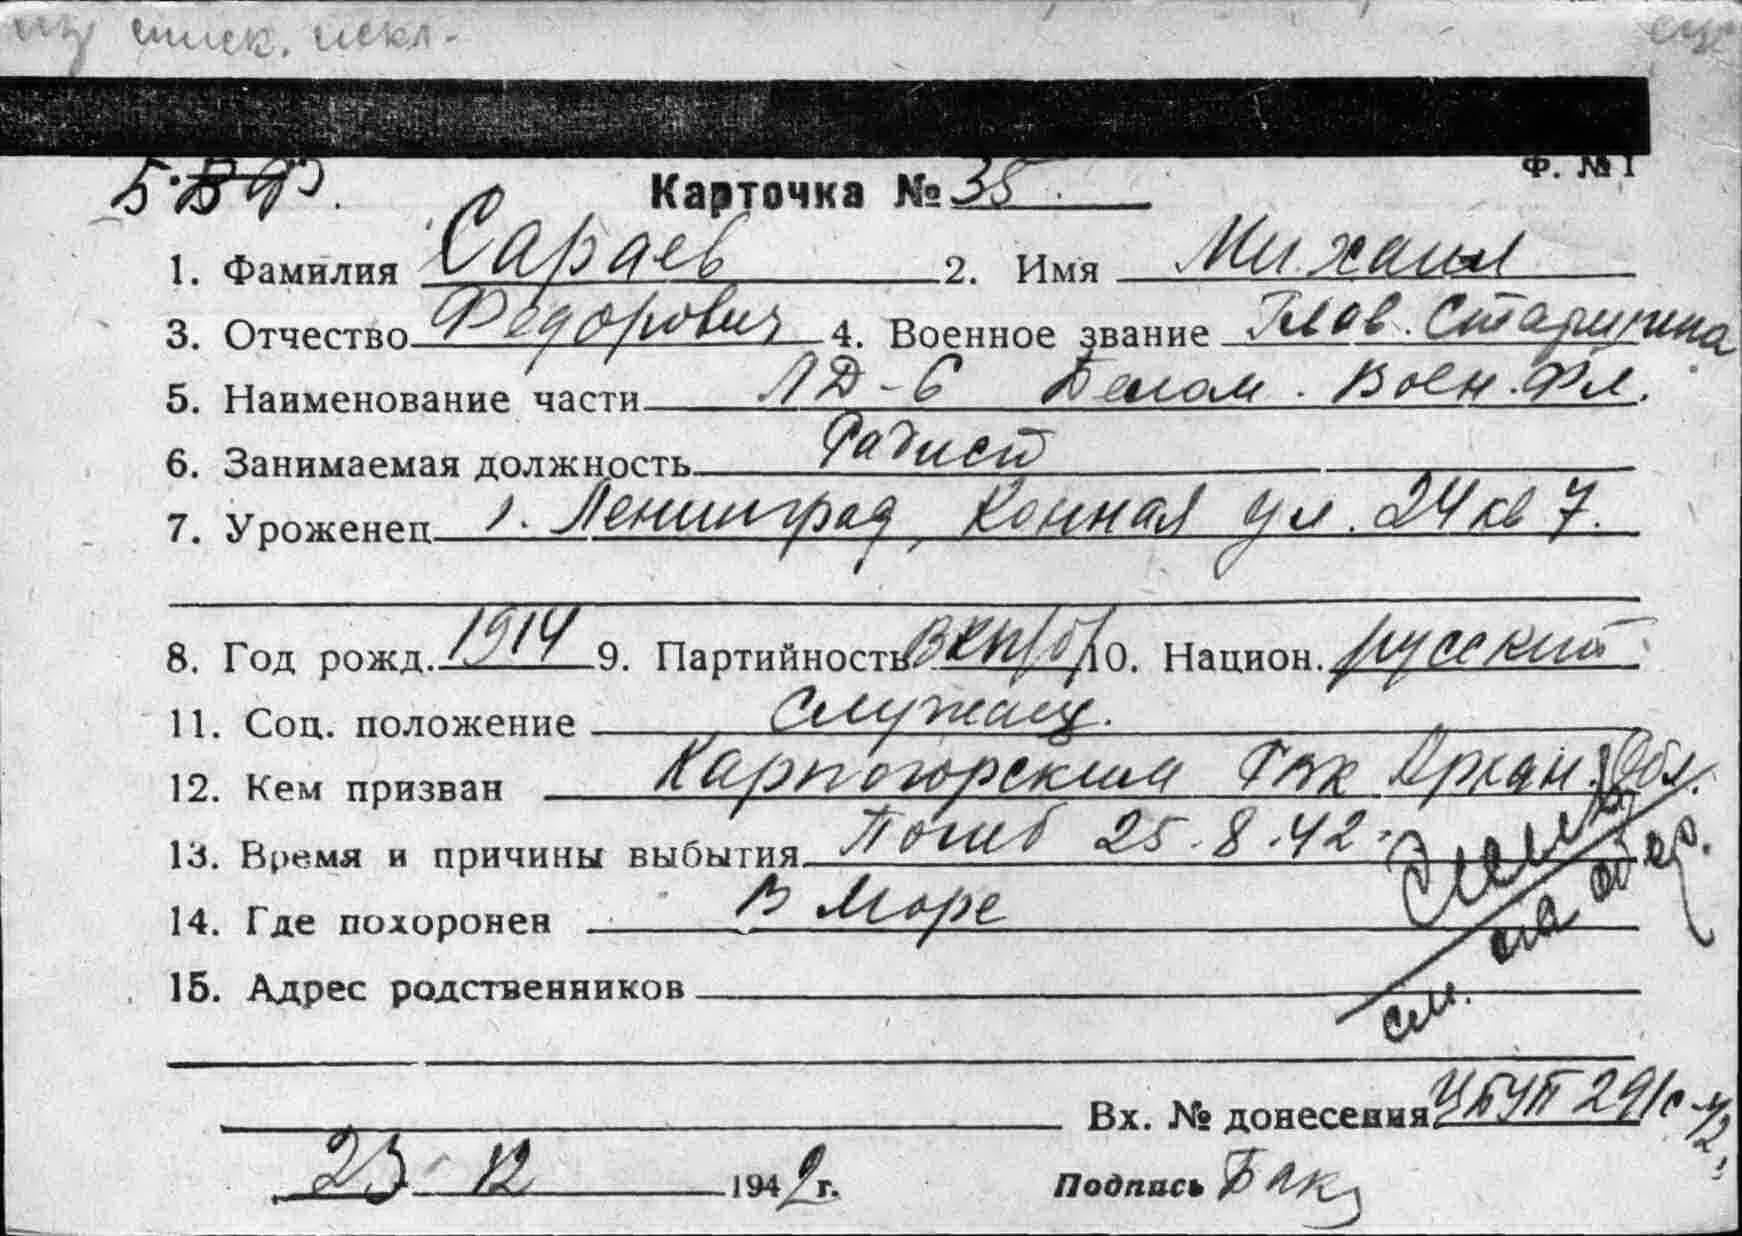 из списк. искл.
Ф. № 1
Б.В.Ф.
Карточка № 35
1. Фамилия Сараев 2. Имя Михаил
3. Отчество Федорович 4. Военное звание Глав. Старшина
5. Наименование части ЛД-6 Белом. Воен. Фл.
6. Занимаемая должность Радист
7. Уроженец г. Ленинград, Конная ул. 24 кв 7.
8. Год рожд. 1914 9. Партийность ВКП/б/ 10. Национ. русский
11. Соц. положение Служащ.
12. Кем призван Карпогорским РВК Архан. Обл.
13. Время и причины выбытия Погиб 25.8.42.
14. Где похоронен В Море
15. Адрес родственников
см. на обор.
Вх. № донесения ЦБУП 291с
23 12 1942 г. Подпись